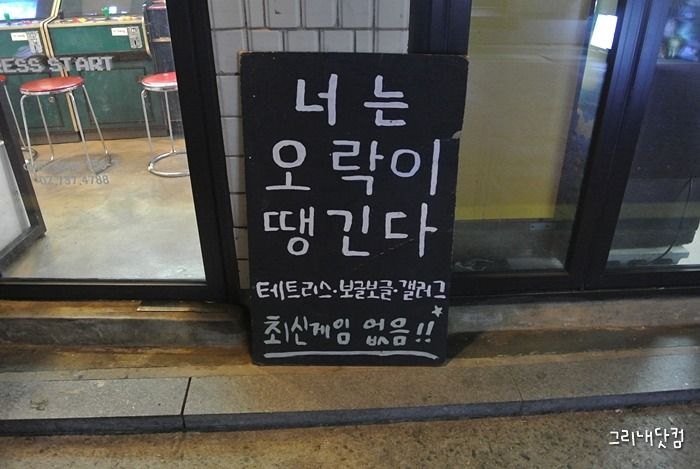 ESS START
02.737.4788
너는
오락이
땡긴다
테트리스·보글보글·갤러그
최신게임 없음!!
그리내닷컴